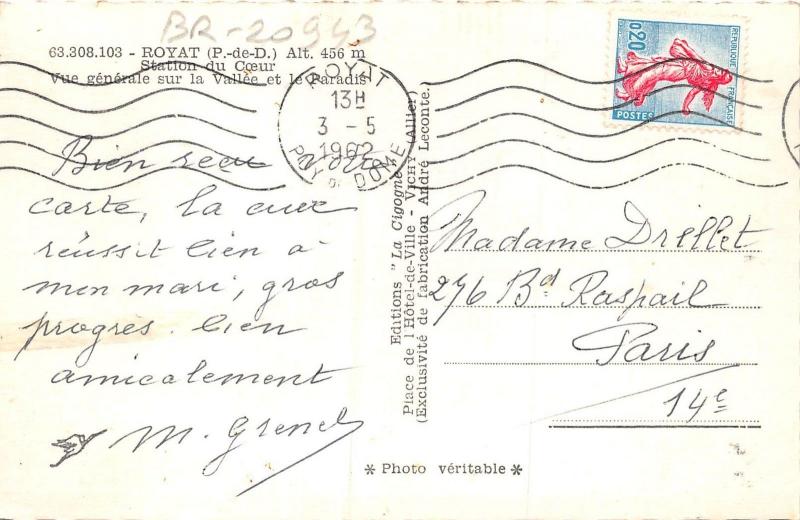 BR-20943
63.308.103 - ROYAT (P.-de-D.) Alt. 456 m
Station du Cœur
Vue générale sur la Vallée et le Paradis
ROYAT
13H
3 - 5
1962
PUY DE DOME
Bien reçu
carte, la cure
réussit bien à
mon mari, gros
progrès. bien
amicalement
M. Grenel
Editions "La Cigogne"
Place de l'Hôtel-de-Ville - VICHY (Allier)
(Exclusivité de fabrication André Leconte.)
REPUBLIQUE FRANÇAISE
0,20
POSTES
Madame Drillet
276 Bd Raspail
Paris
14e
* Photo véritable *